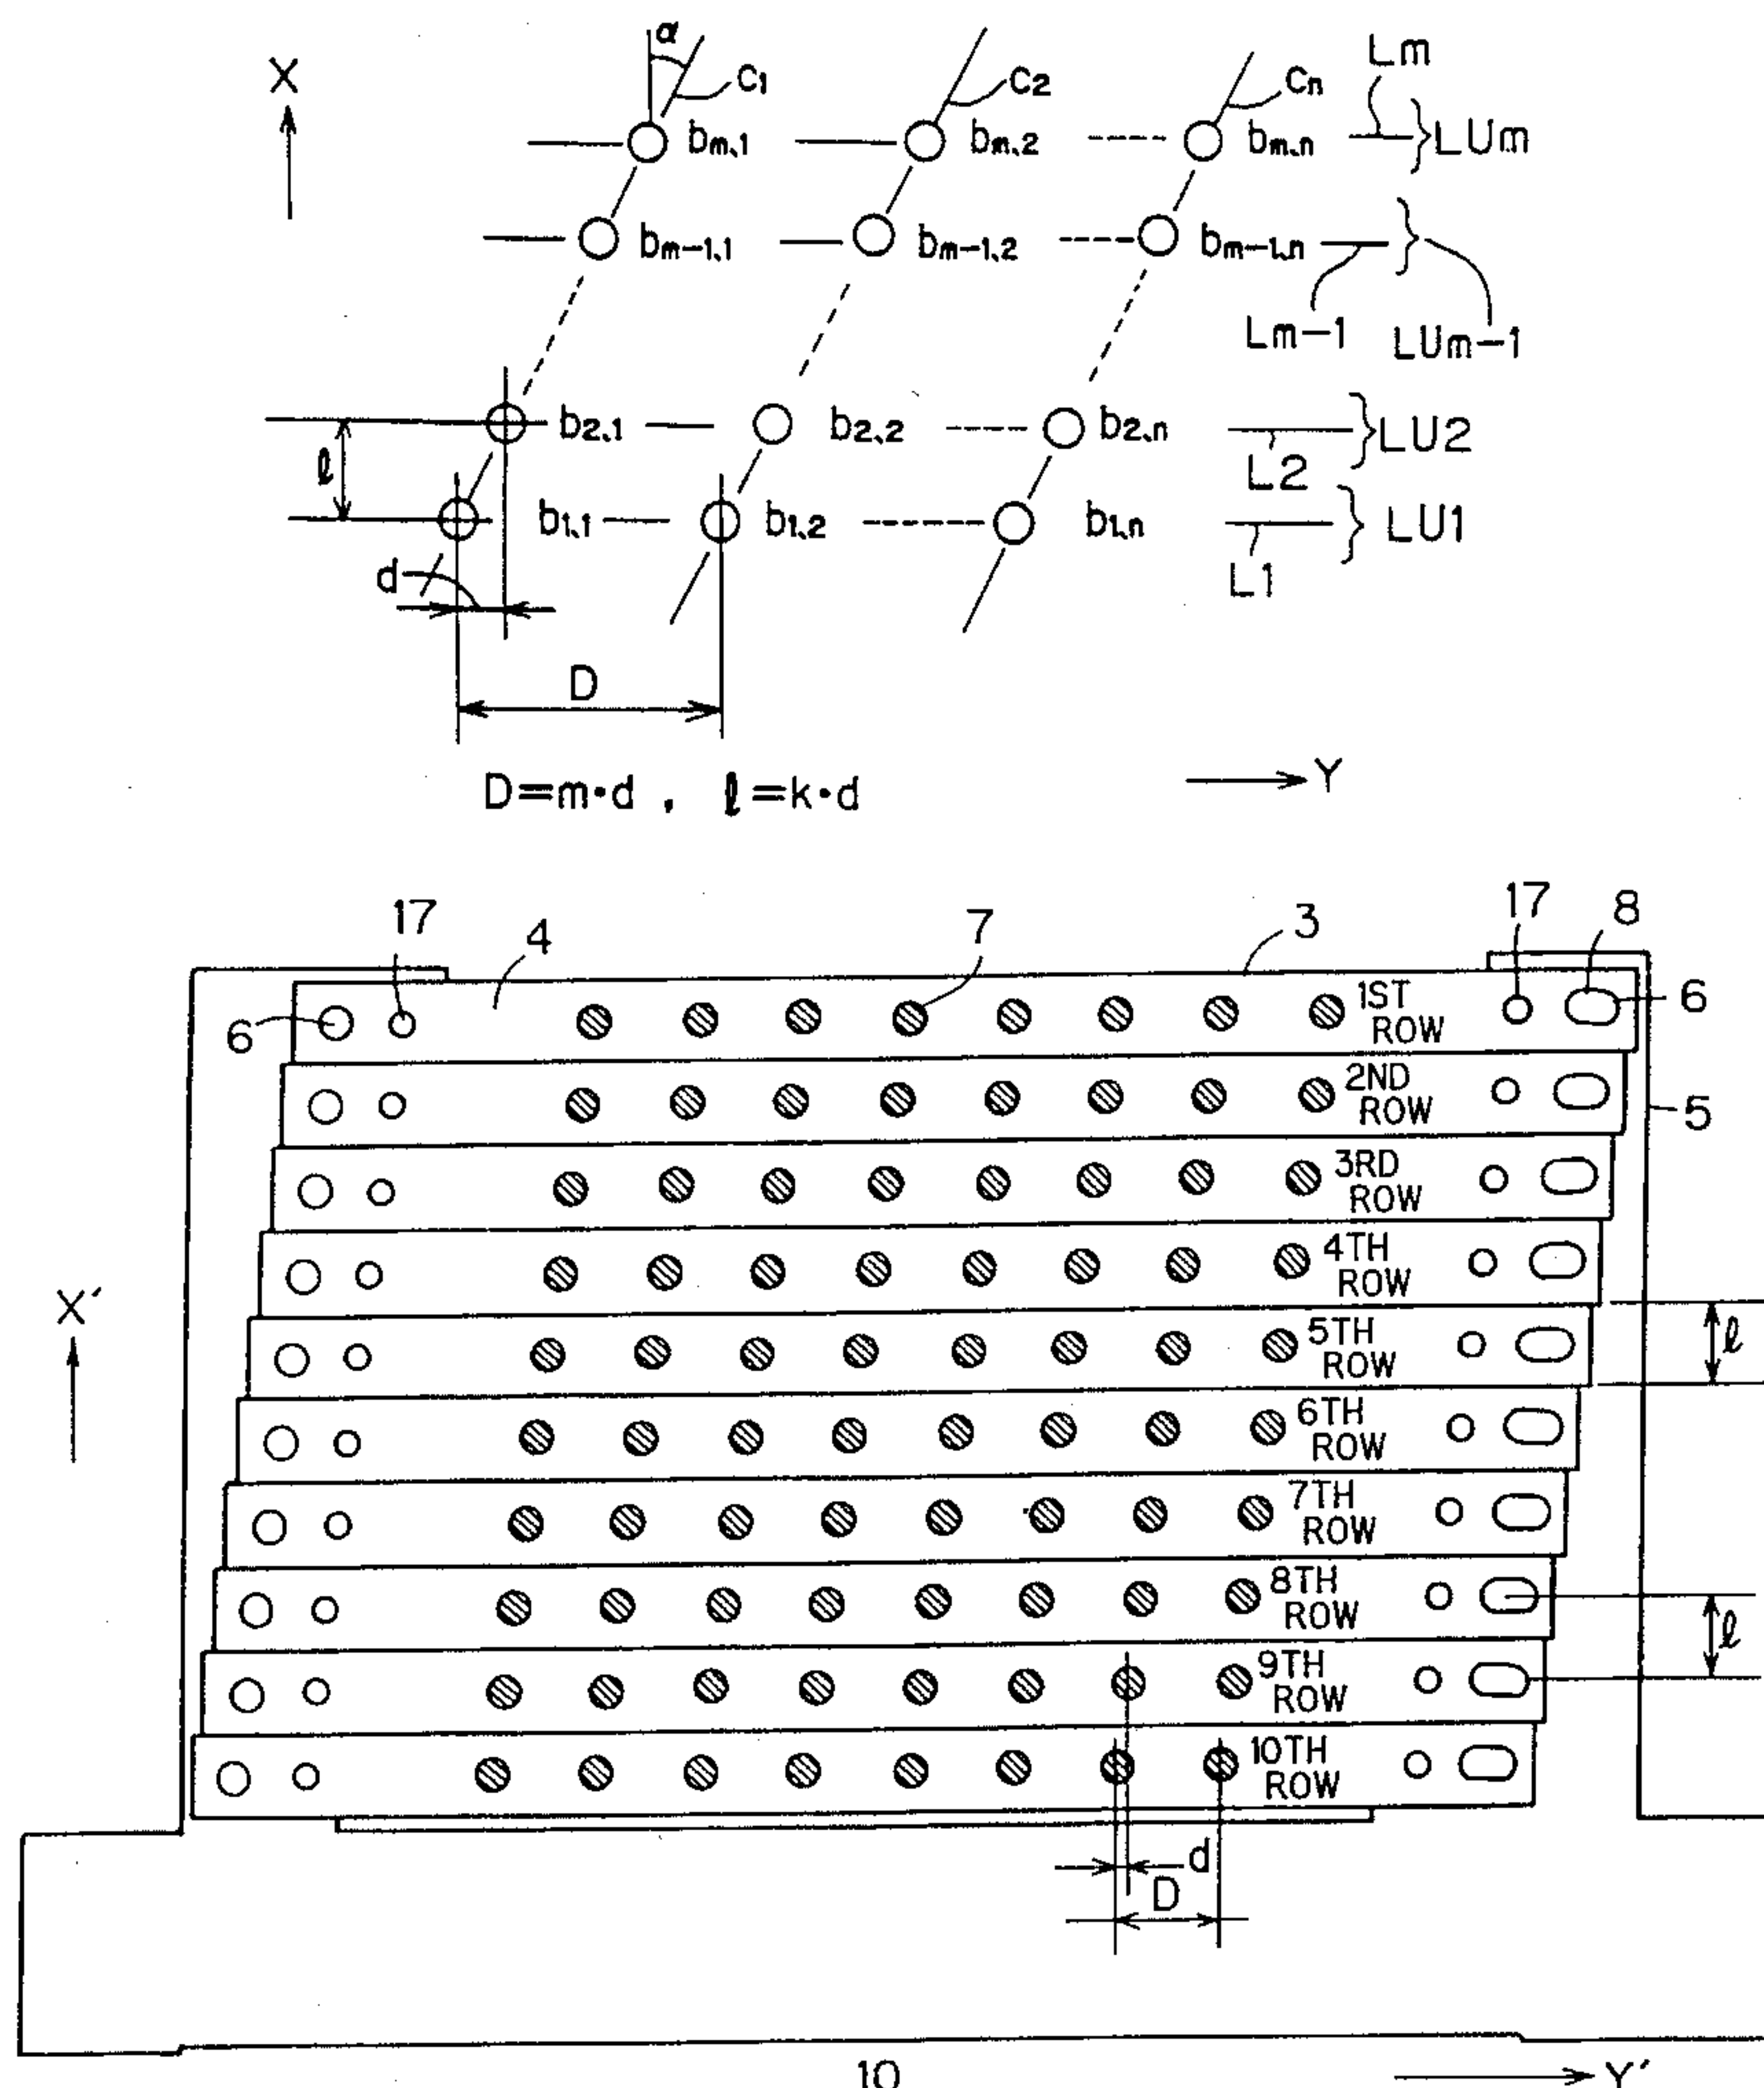 α
X C1 C2 Cn Lm
bm,1 bm,2 bm,n LUm
bm-1,1 bm-1,2 bm-1,n
Lm-1 LUm-1
b2,1 b2,2 b2,n LU2
ℓ L2
b1,1 b1,2 b1,n LU1
d L1
D
D=m·d , ℓ=k·d Y
17 4 7 3 17 8
6 1ST ROW 6
2ND ROW 5
3RD ROW
X′ 4TH ROW
5TH ROW ℓ
6TH ROW
7TH ROW
8TH ROW ℓ
9TH ROW
10TH ROW
d
D
10 Y′